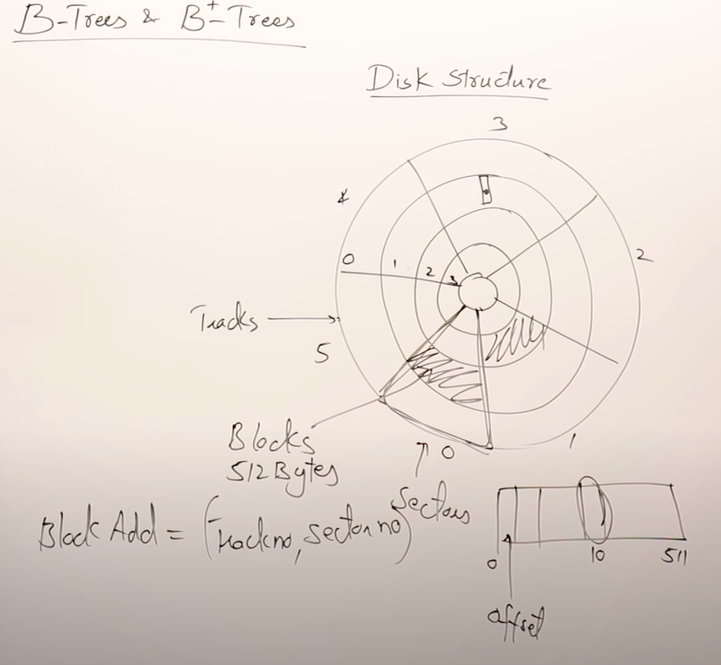 B-Trees & B+-Trees
Disk Structure
3
4
0 1 2
2
Tracks
5
Blocks
512 Bytes
0
1
Sectors
Block Add = (Track no, sector no)
0 10 511
offset